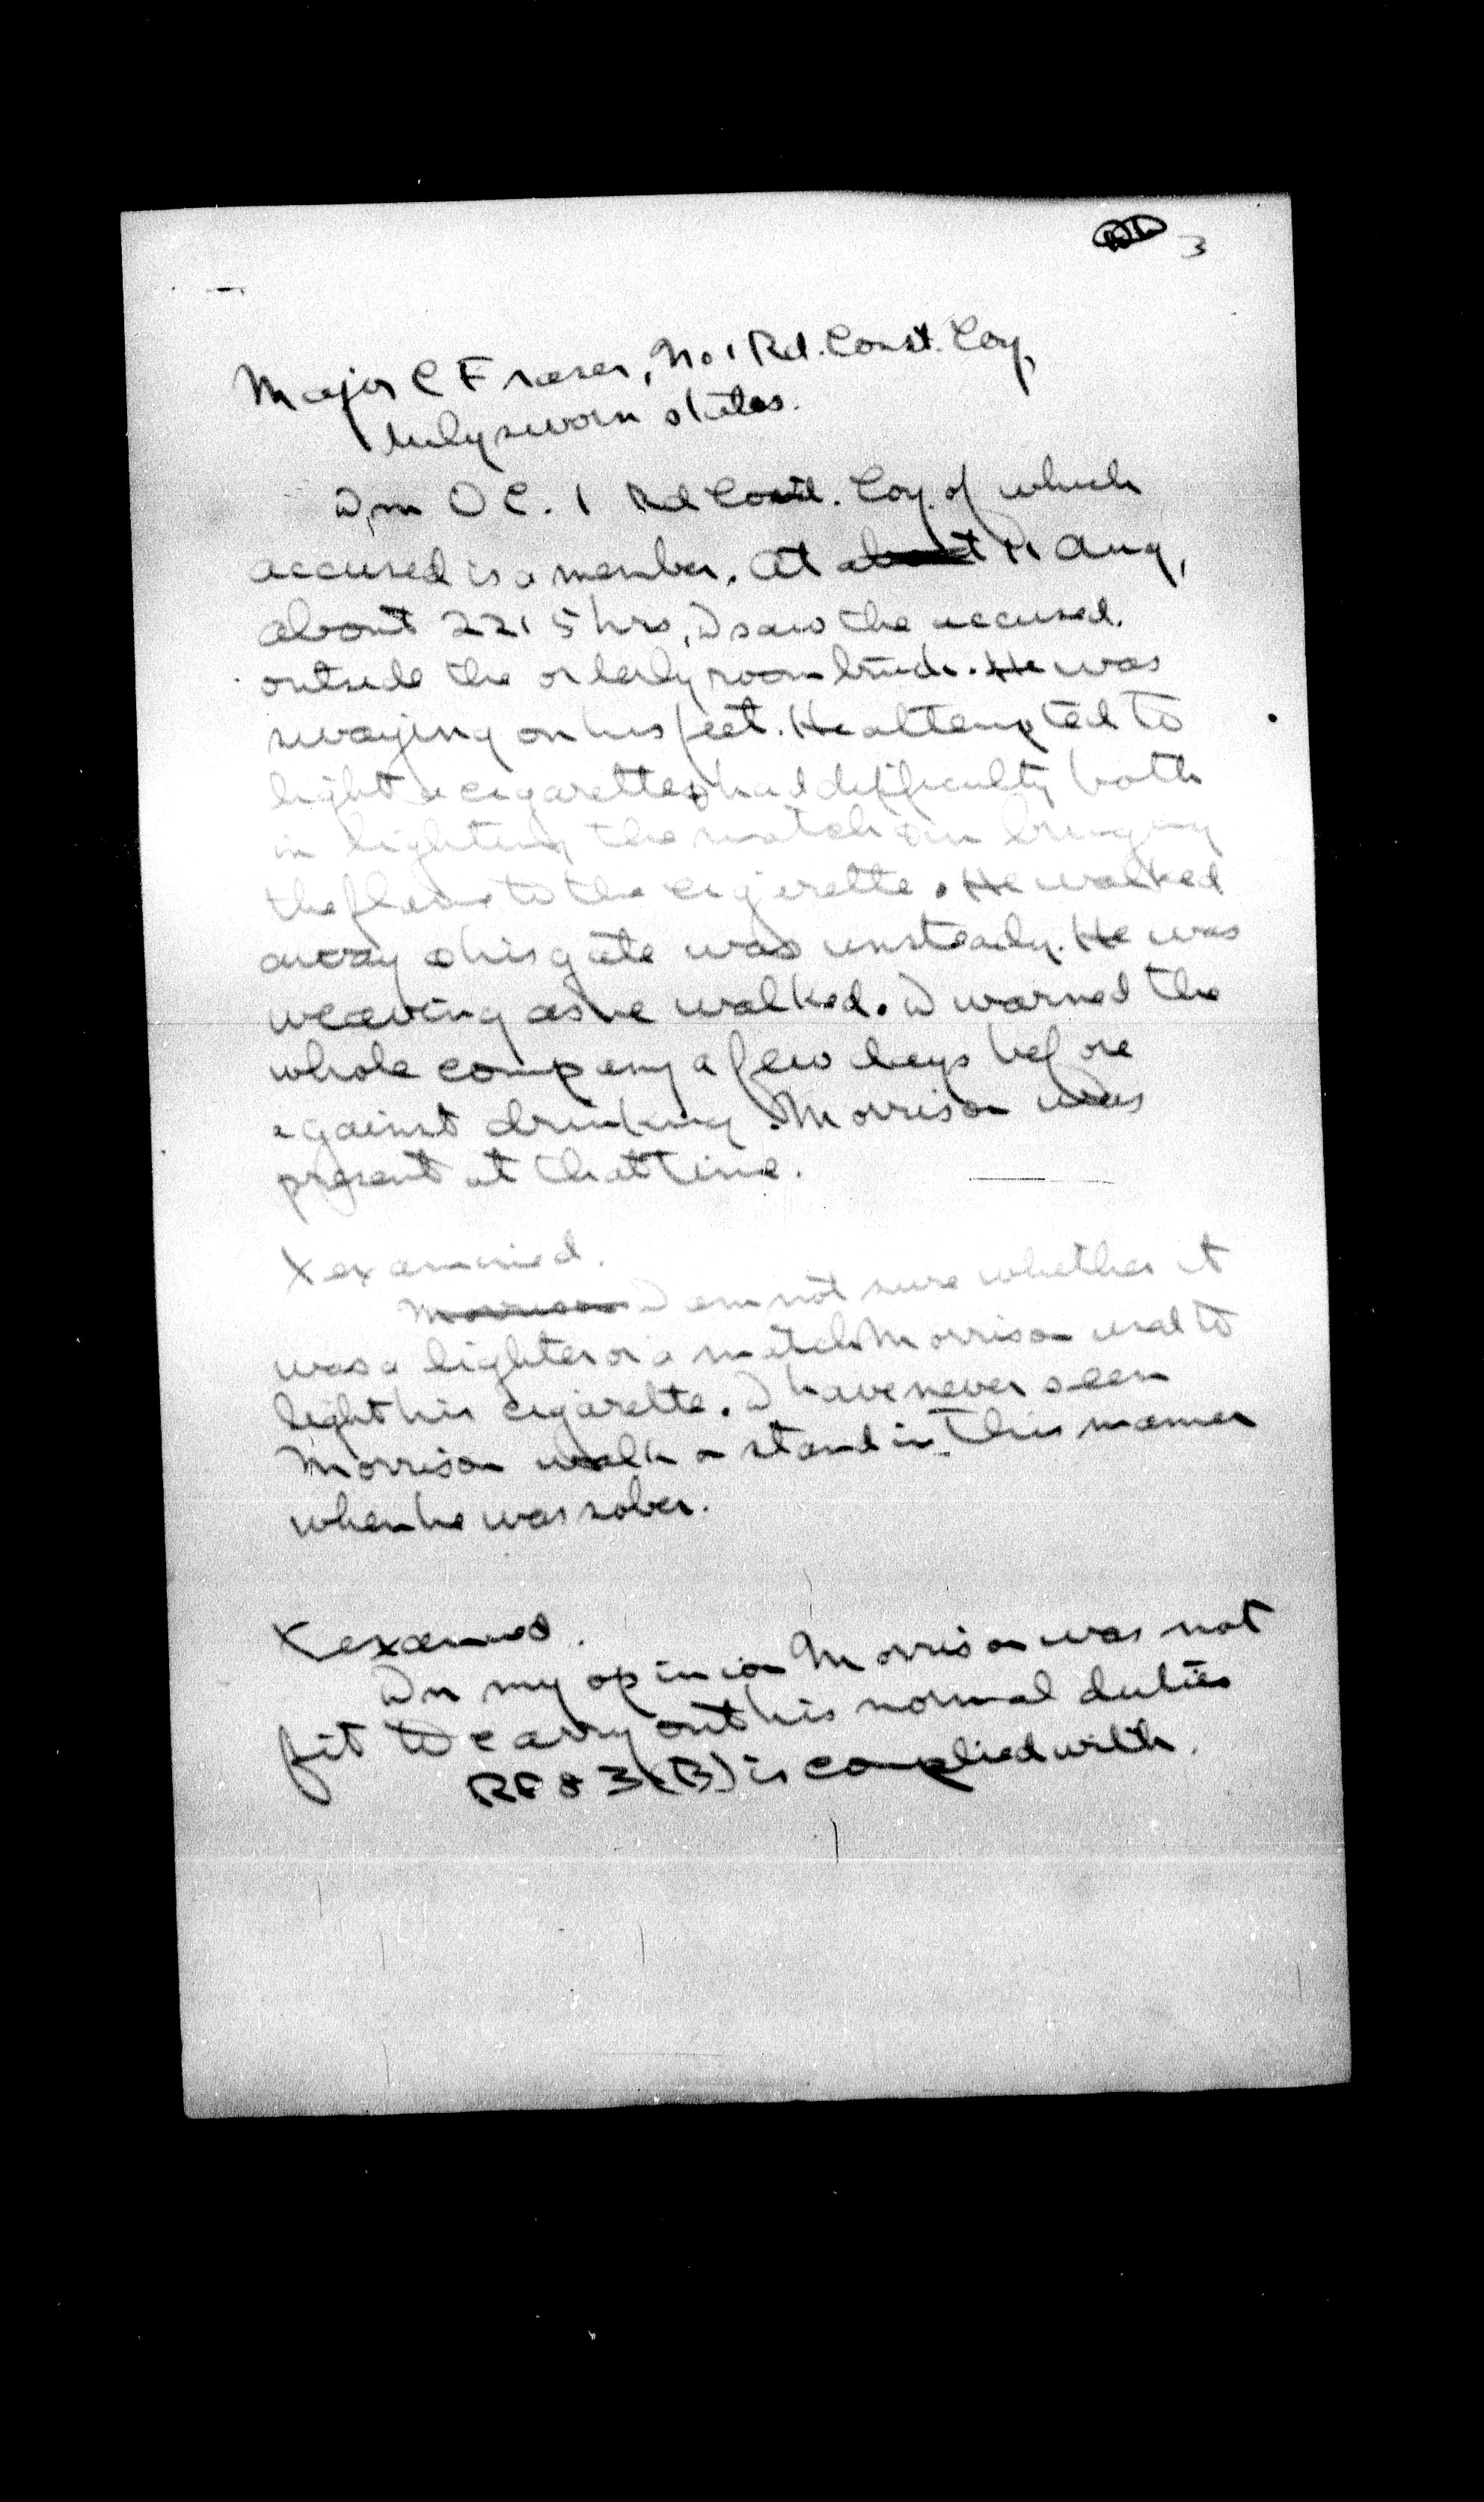 3
Major C Fraser, No 1 Rd. Const. Coy,
duly sworn states.
I'm O C. 1 Rd Const. Coy. of which
accused is a member. At about Aug,
about 2215 hrs, I saw the accused.
outside the orderly room. He was
swaying on his feet. He attempted to
light a cigarette & had difficulty both
in lighting the match & in bringing
the flame to the cigarette. He walked
away & his gate was unsteady. He was
weaving as he walked. I warned the
whole company a few days before
against drinking. Morrison was
present at that time.
X examined.
Morrison I am not sure whether it
was a lighter or a match Morrison used to
light his cigarette. I have never seen
Morrison walk or stand in this manner
when he was sober.
X examined.
In my opinion Morrison was not
fit to carry out his normal duties
RP 83 (B) is complied with.